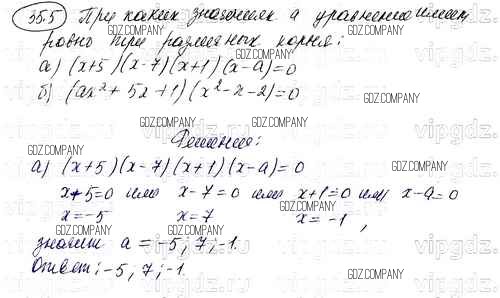 35.5 При каких значениях а уравнение имеет
ровно три различных корня:
а) (x+5)(x-7)(x+1)(x-a)=0
б) (ax²+5x+1)(x²-x-2)=0
Решения:
а) (x+5)(x-7)(x+1)(x-a)=0
x+5=0 или x-7=0 или x+1=0 или x-a=0
x=-5 x=7 x=-1,
значит a=-5; 7; -1.
Ответ: -5; 7; -1.